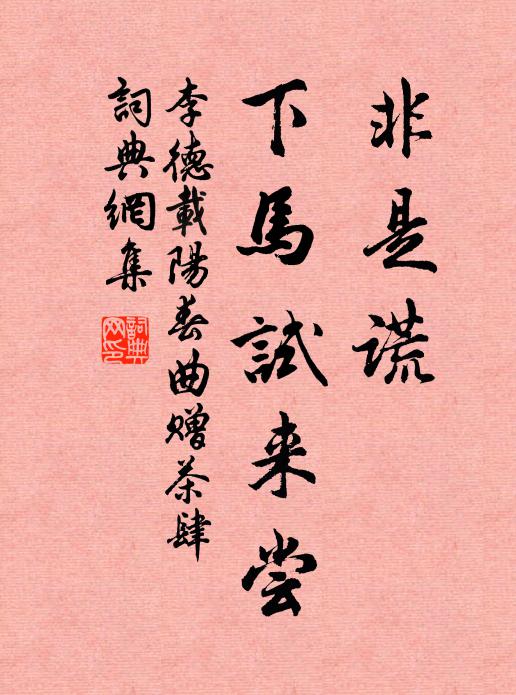 非是谎
下馬試来尝
李德載陽春曲赠茶肆
詞典網集
詞典网印